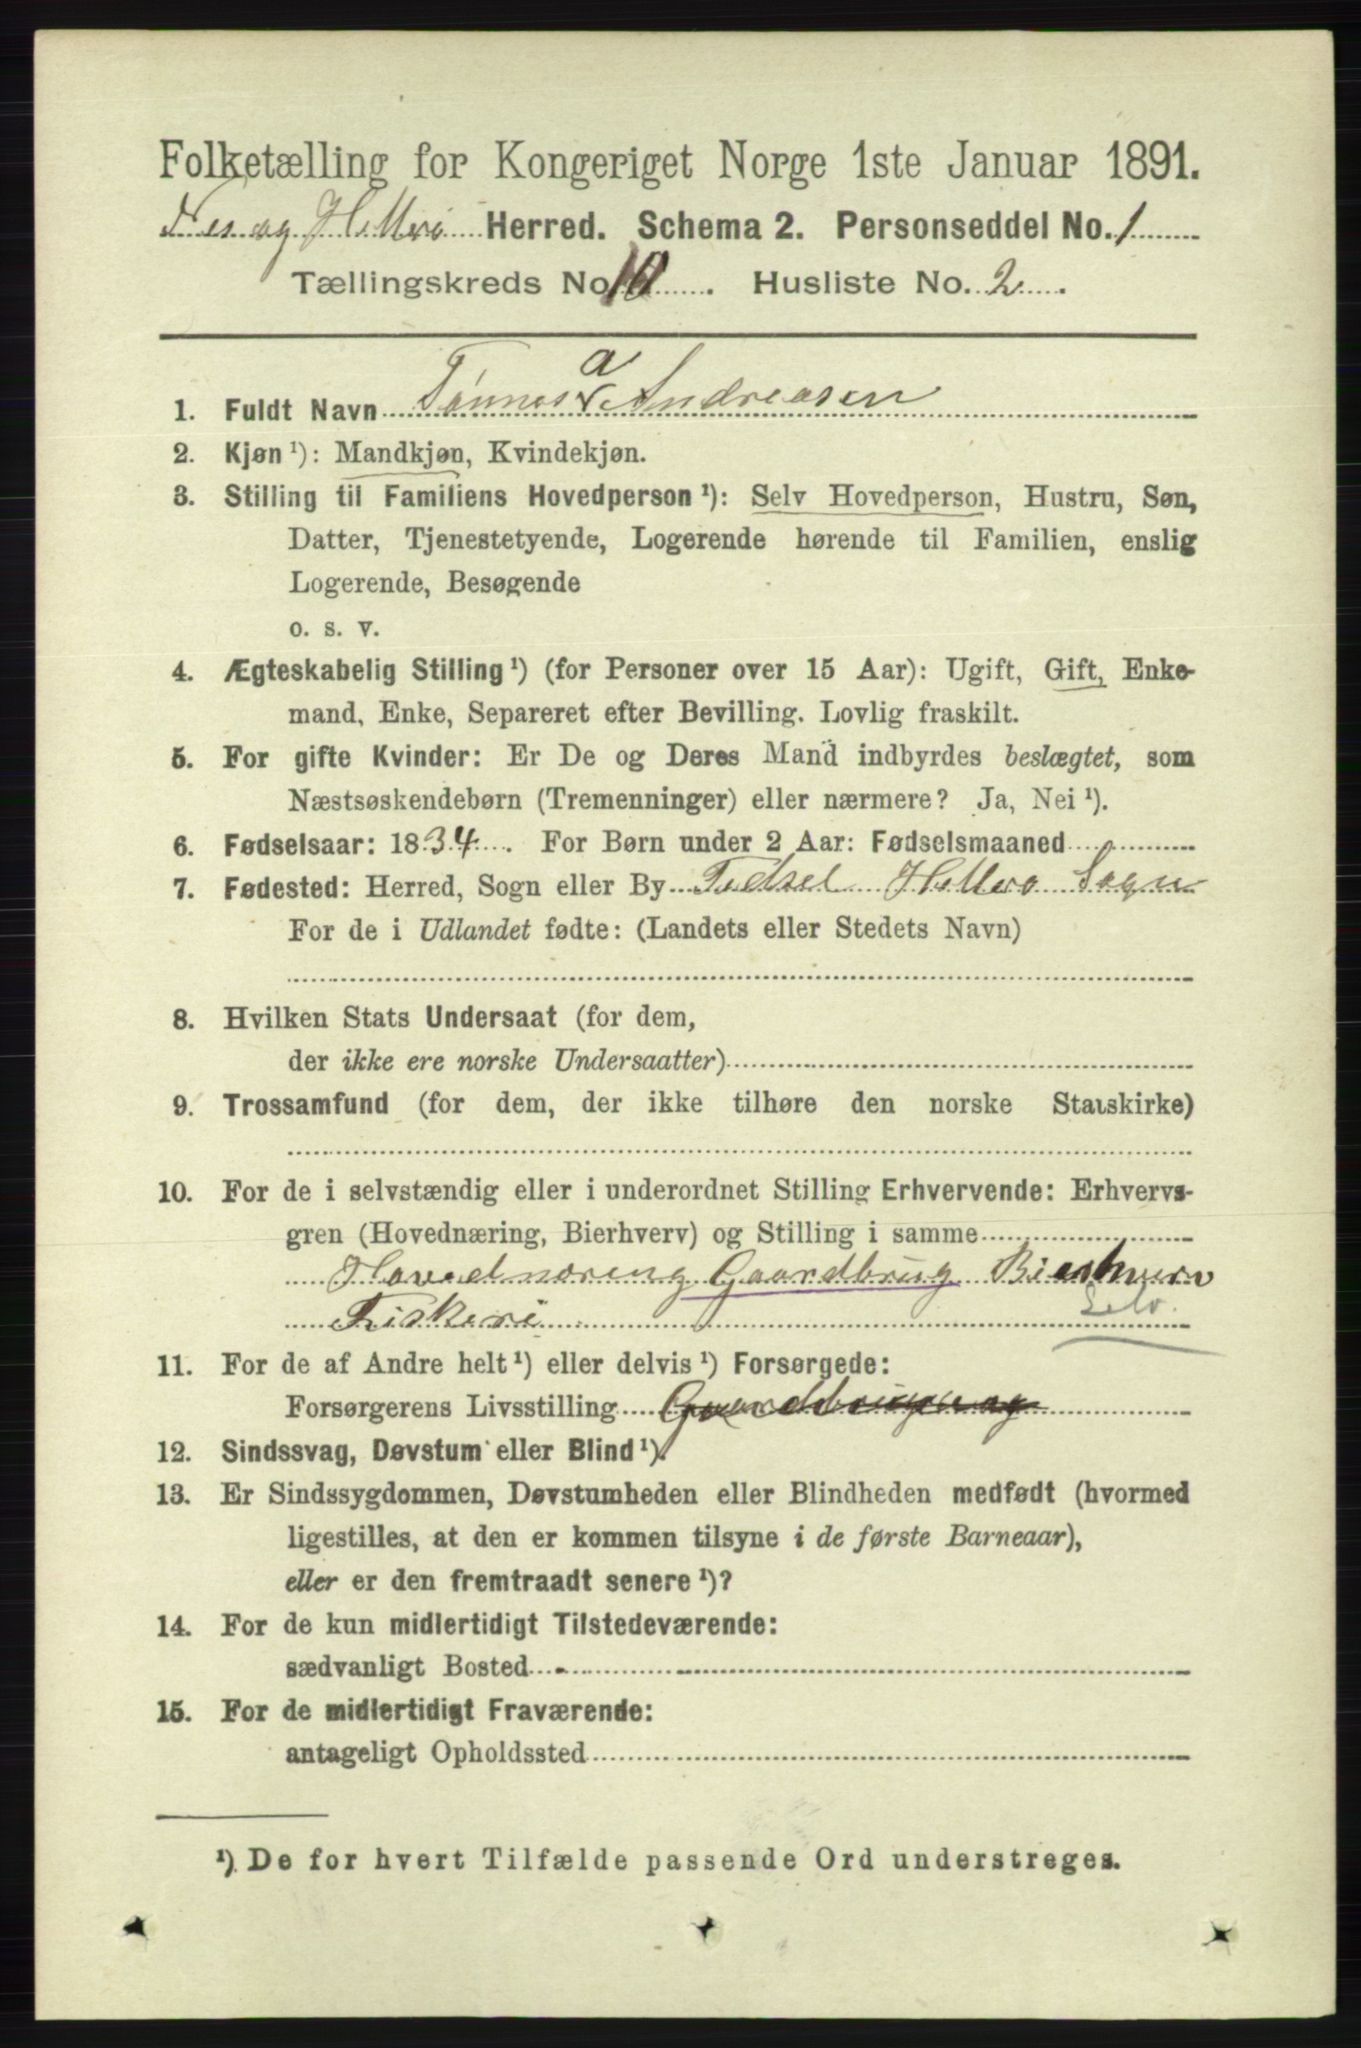 Folketælling for Kongeriget Norge 1ste Januar 1891.
Nes og Hitterø Herred. Schema 2. Personseddel No. 1
Tællingskreds No. 10. Husliste No. 2.
a
1. Fuldt Navn Tønnes Andreasen
2. Kjøn ¹): Mandkjøn, Kvindekjøn.
3. Stilling til Familiens Hovedperson ¹): Selv Hovedperson, Hustru, Søn,
Datter, Tjenestetyende, Logerende hørende til Familien, enslig
Logerende, Besøgende
o. s. v.
4. Ægteskabelig Stilling ¹) (for Personer over 15 Aar): Ugift, Gift, Enke-
mand, Enke, Separeret efter Bevilling. Lovlig fraskilt.
5. For gifte Kvinder: Er De og Deres Mand indbyrdes beslægtet, som
Næstsøskendebørn (Tremenninger) eller nærmere? Ja, Nei ¹).
6. Fødselsaar: 1834. For Børn under 2 Aar: Fødselsmaaned
7. Fødested: Herred, Sogn eller By Fedsel Hitterø Sogn
For de i Udlandet fødte: (Landets eller Stedets Navn)
8. Hvilken Stats Undersaat (for dem,
der ikke ere norske Undersaatter)
9. Trossamfund (for dem, der ikke tilhøre den norske Statskirke)
10. For de i selvstændig eller i underordnet Stilling Erhvervende: Erhvervs-
gren (Hovednæring, Bierhverv) og Stilling i samme
Hovednæring Gaardbrug Bierhverv
Fiskeri Selv.
11. For de af Andre helt ¹) eller delvis ¹) Forsørgede:
Forsørgerens Livsstilling
12. Sindssvag, Døvstum eller Blind ¹).
13. Er Sindssygdommen, Døvstumheden eller Blindheden medfødt (hvormed
ligestilles, at den er kommen tilsyne i de første Barneaar),
eller er den fremtraadt senere ¹)?
14. For de kun midlertidigt Tilstedeværende:
sædvanligt Bosted
15. For de midlertidigt Fraværende:
antageligt Opholdssted
¹) De for hvert Tilfælde passende Ord understreges.